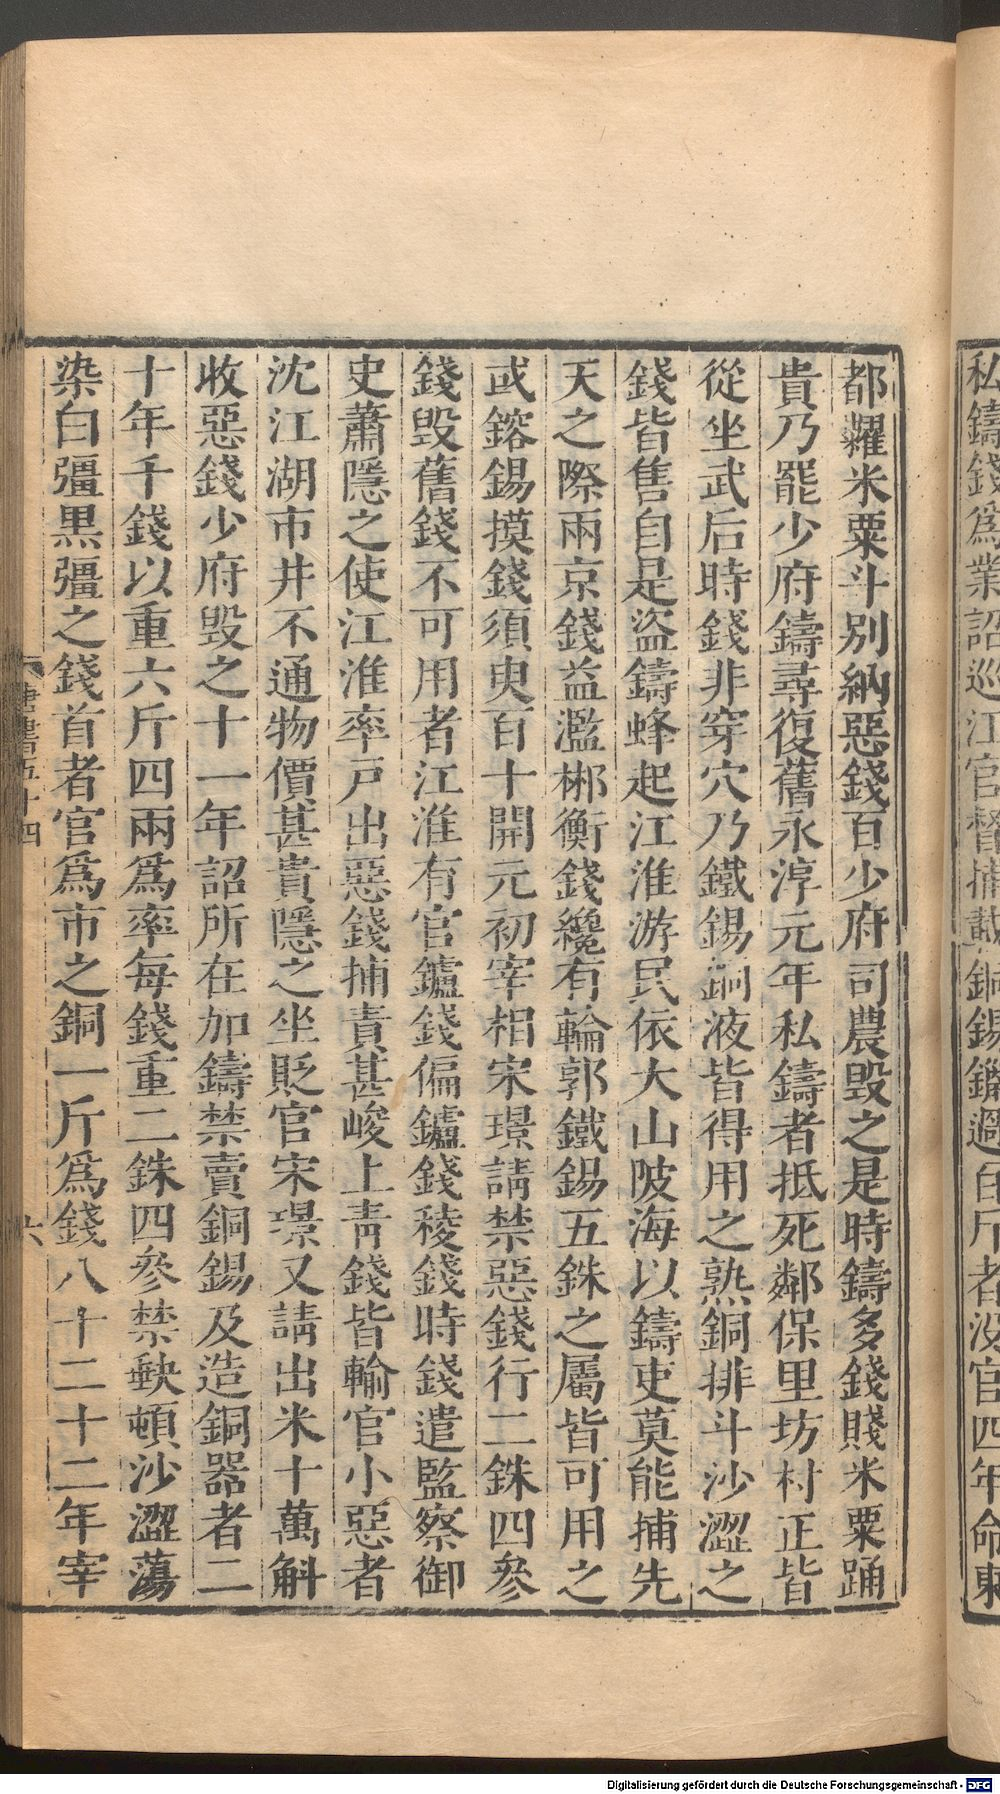 私鑄錢爲業詔巡江官督捕載銅錫鑞過百斤者没官四年命東
都糶米粟斗別納惡錢百少府司農毀之是時鑄多錢賤米粟踊
貴乃罷少府鑄尋復舊永淳元年私鑄者抵死鄰保里坊村正皆
從坐武后時錢非穿穴乃鐵錫銅液皆得用之熟銅排斗沙澀之
錢皆售自是盜鑄蜂起江淮游民依大山陂海以鑄吏莫能捕先
天之際兩京錢益濫郴衡錢纔有輪郭鐵錫五銖之屬皆可用之
或鎔錫摸錢須臾百十開元初宰相宋璟請禁惡錢行二銖四參
錢毀舊錢不可用者江淮有官鑪錢偏鑪錢稜錢時錢遣監察御
史蕭隱之使江淮率戸出惡錢捕責甚峻上青錢皆輸官小惡者
沈江湖市井不通物價甚貴隱之坐貶官宋璟又請出米十萬斛
收惡錢少府毀之十一年詔所在加鑄禁賣銅錫及造銅器者二
十年千錢以重六斤四兩爲率每錢重二銖四參禁缺頓沙澀蕩
染白彊黑彊之錢首者官爲市之銅一斤爲錢八十二十二年宰
唐書五十四
六
Digitalisierung gefördert durch die Deutsche Forschungsgemeinschaft - DFG